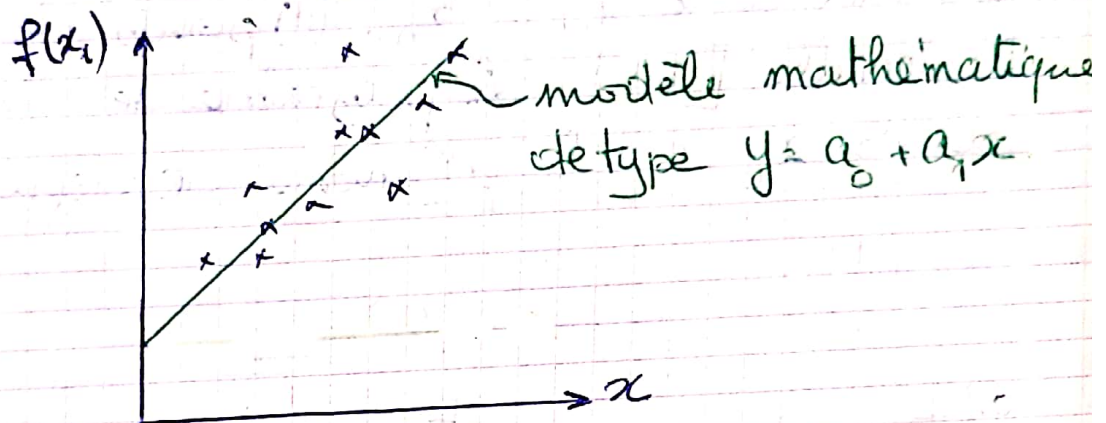 f(x₁)
modèle mathématique
de type y = a₀ + a₁x
x